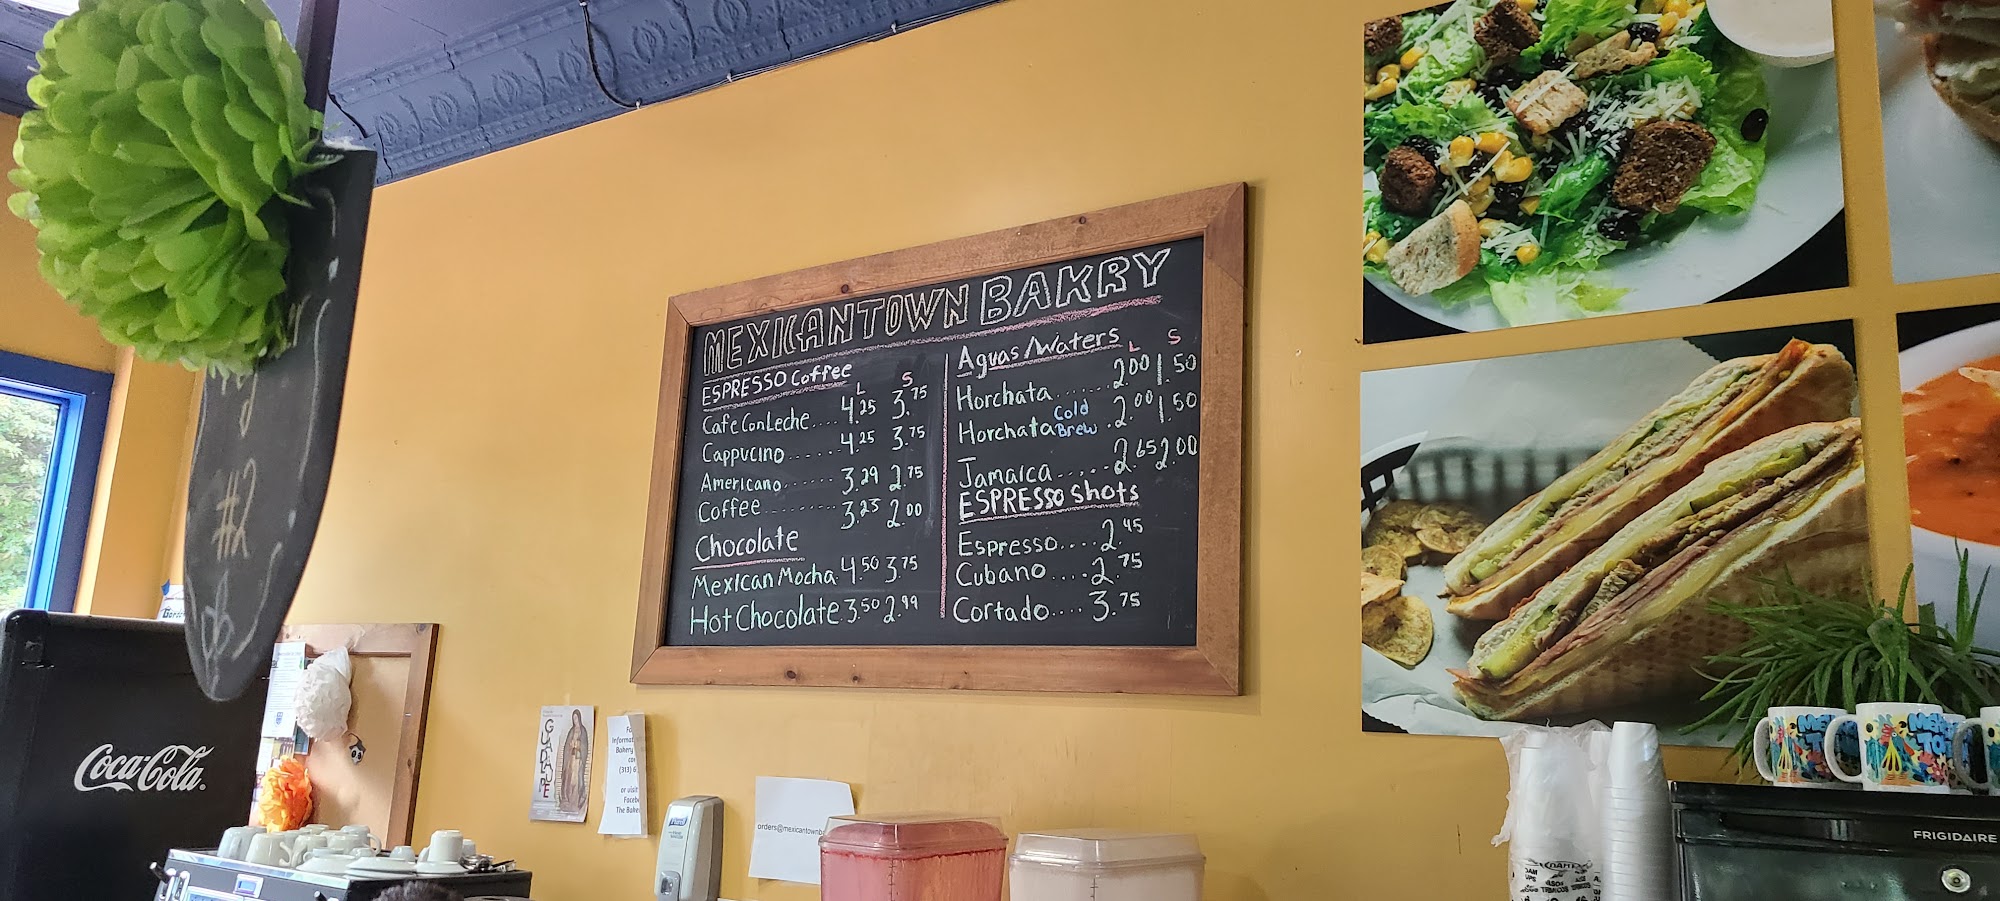 MEXICANTOWN BAKRY
ESPRESSO Coffee L S
Cafe Con Leche.... 4.25 3.75
Cappucino...... 4.25 3.75
Americano...... 3.29 2.75
Coffee......... 3.25 2.00
Chocolate
Mexican Mocha. 4.50 3.75
Hot Chocolate. 3.50 2.99
Aguas/Waters L S
Horchata...... 2.00 1.50
Horchata Cold Brew . 2.00 1.50
Jamaica..... 2.65 2.00
ESPRESSO Shots
Espresso.... 2.45
Cubano.... 2.75
Cortado.... 3.75
#2
Coca-Cola
GUADALUPE
(313) 6
or visit
The Bake
orders@mexicantownb
FRIGIDAIRE